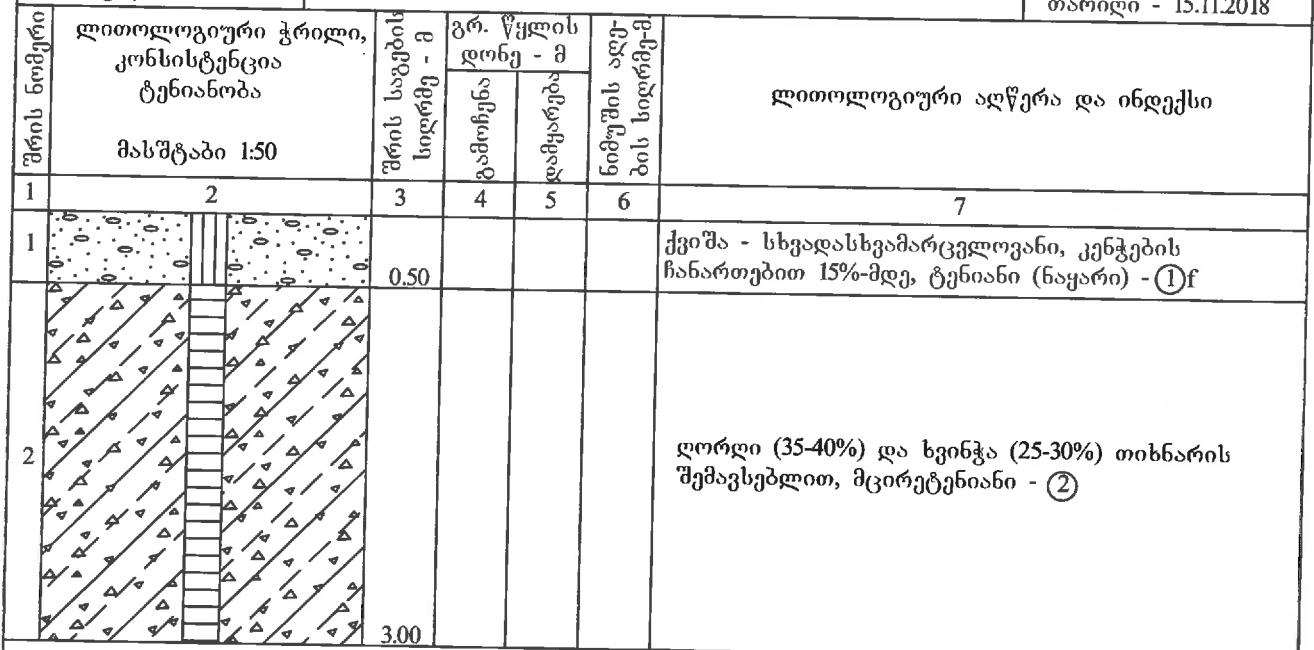 თარიღი - 15.11.2018
შრის ნომერი
ლითოლოგიური ჭრილი,
კონსისტენცია
ტენიანობა
მასშტაბი 1:50
შრის საგების
სიღრმე - მ
გრ. წყლის
დონე - მ
გამოჩენა
დამყარება
ნიმუშის აღე-
ბის სიღრმე-მ
ლითოლოგიური აღწერა და ინდექსი
1 2 3 4 5 6 7
1
0.50
ქვიშა - სხვადასხვამარცვლოვანი, კენჭების
ჩანართებით 15%-მდე, ტენიანი (ნაყარი) - ①f
2
3.00
ღორღი (35-40%) და ხვინჭა (25-30%) თიხნარის
შემავსებლით, მცირეტენიანი - ②